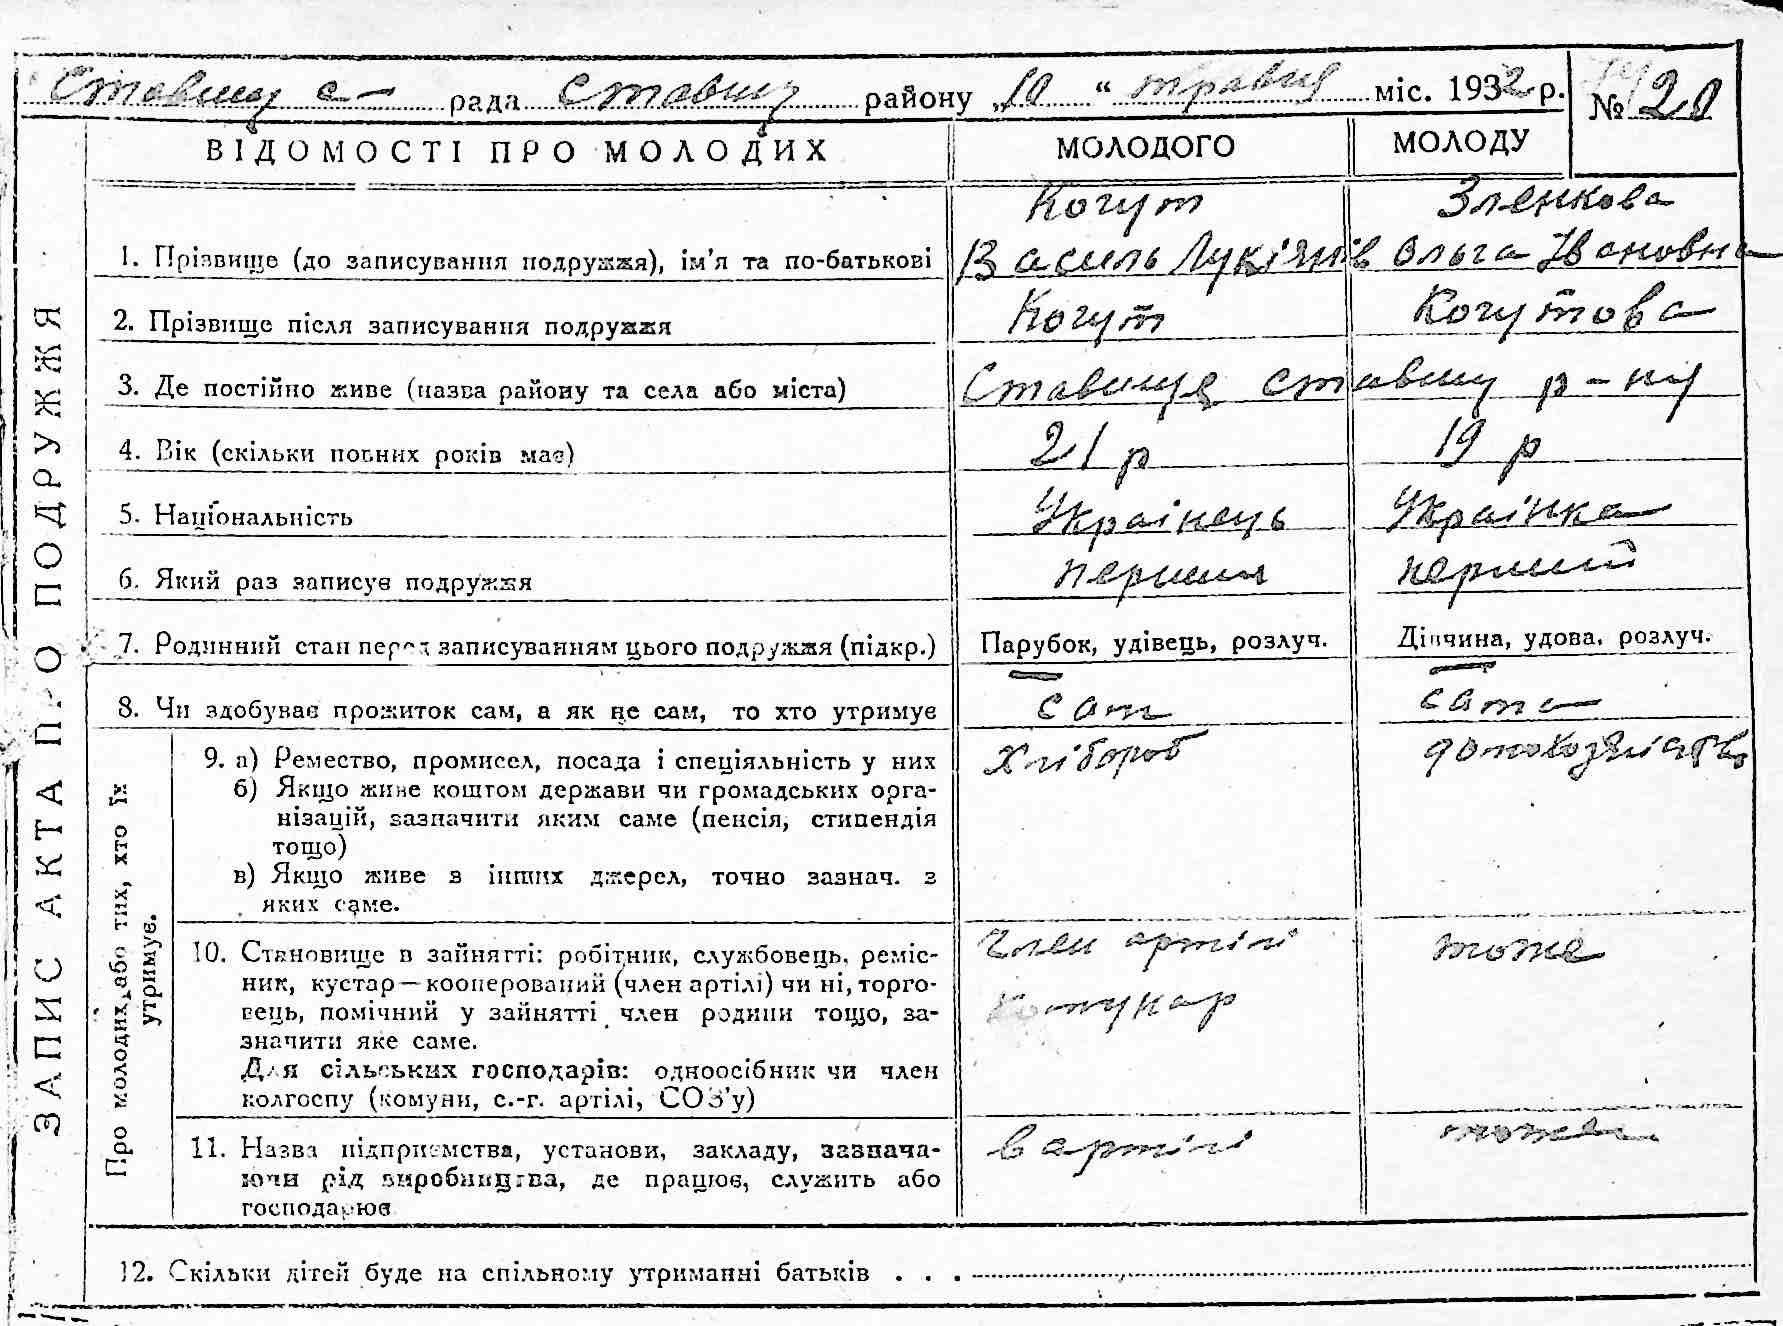 Ставищ с– рада Ставищ району „10“ травня міс. 1932 р. № 20
ВІДОМОСТІ ПРО МОЛОДИХ МОЛОДОГО МОЛОДУ
ЗАПИС АКТА ПРО ПОДРУЖЖЯ
Когут Зленкова
1. Прізвище (до записування подружжя), ім’я та по-батькові Василь Лукіянів Ольга Івановна
2. Прізвище після записування подружжя Когут Когутова
3. Де постійно живе (назва району та села або міста) Ставище Ставищ р-ну
4. Вік (скільки повних років має) 21 р 19 р
5. Національність Українець Українка
6. Який раз записує подружжя перший
7. Родинний стан перед записуванням цього подружжя (підкр.) Парубок, удівець, розлуч. Дівчина, удова, розлуч.
8. Чи здобуває прожиток сам, а як не сам, то хто утримує сам сама
Про молодих, або тих, хто їх
утримує.
9. а) Ремество, промисел, посада і спеціяльність у них хлібороб
б) Якщо живе коштом держави чи громадських орга-
нізацій, зазначити яким саме (пенсія, стипендія
тощо)
в) Якщо живе з інших джерел, точно зазнач. з
яких саме.
10. Становище в зайнятті: робітник, службовець, реміс- Член артілі тоже
ник, кустар—кооперований (член артілі) чи ні, торго-
вець, помічний у зайнятті член родини тощо, за- комунар
значити яке саме.
Для сільських господарів: одноосібник чи член
колгоспу (комуни, с.-г. артілі, СОЗ’у)
11. Назва підприємства, установи, закладу, зазнача- в артілі тоже
ючи рід виробництва, де працює, служить або
господарює
12. Скільки дітей буде на спільному утриманні батьків . . .